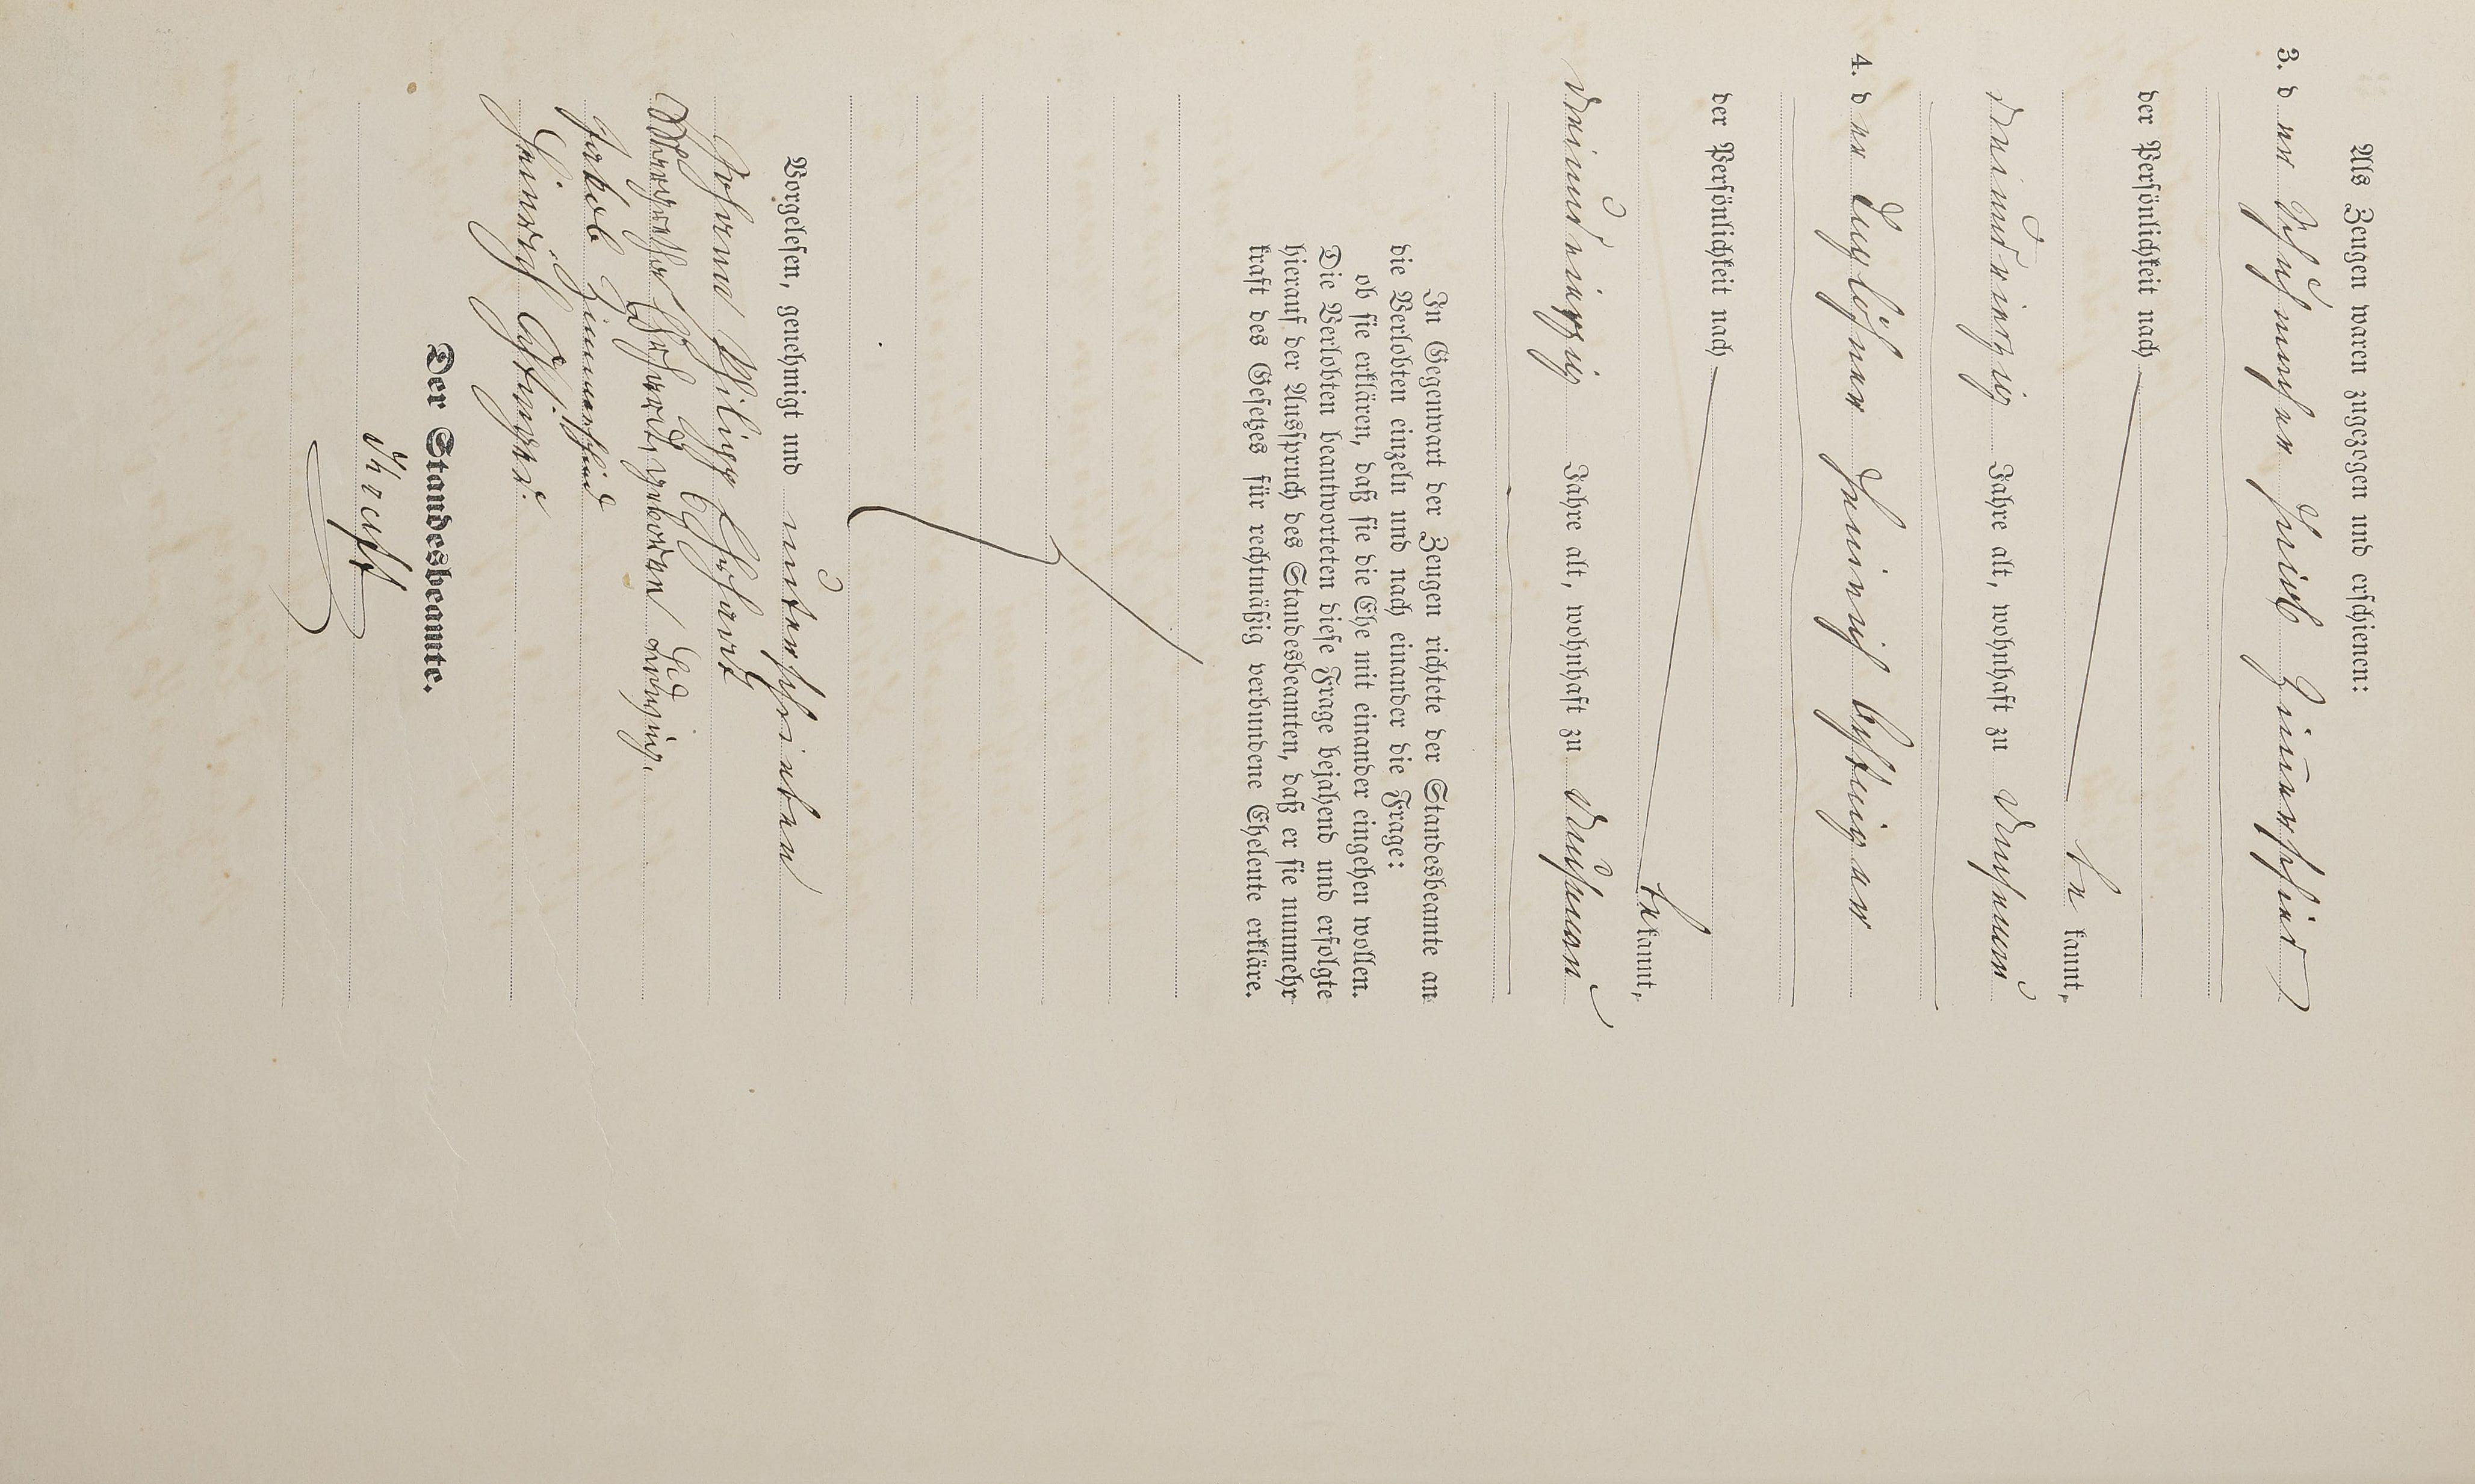 Als Zeugen waren zugezogen und erschienen:
3. der Schuhmacher Jakob Zimmerschied
der Persönlichkeit nach
be kannt,
dreiundvierzig Jahre alt, wohnhaft zu
4. der Taglöhner Heinrich
der Persönlichkeit nach
be kannt,
dreiundvierzig Jahre alt, wohnhaft zu
In Gegenwart der Zeugen richtete der Standesbeamte an
die Verlobten einzeln und nach einander die Frage:
ob sie erklären, daß sie die Ehe mit einander eingehen wollen.
Die Verlobten beantworteten diese Frage bejahend und erfolgte
hierauf der Ausspruch des Standesbeamten, daß er sie nunmehr
kraft des Gesetzes für rechtmäßig verbundene Eheleute erkläre.
Vorgelesen, genehmigt und unterschrieben
Johann Philipp Ephardt
geboren
Jakob Zimmerschied
Heinrich
Der Standesbeamte.